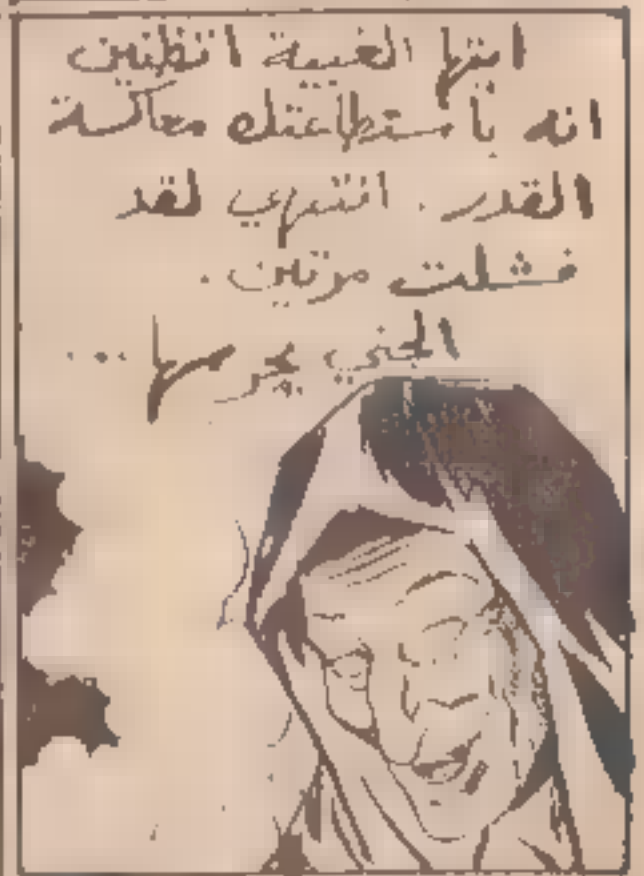 ايتها الغبية اتظنين
انه باستطاعتك معاكسة
القدر. انتهي لقد
فشلت مرتين.
الجني يحرسها...